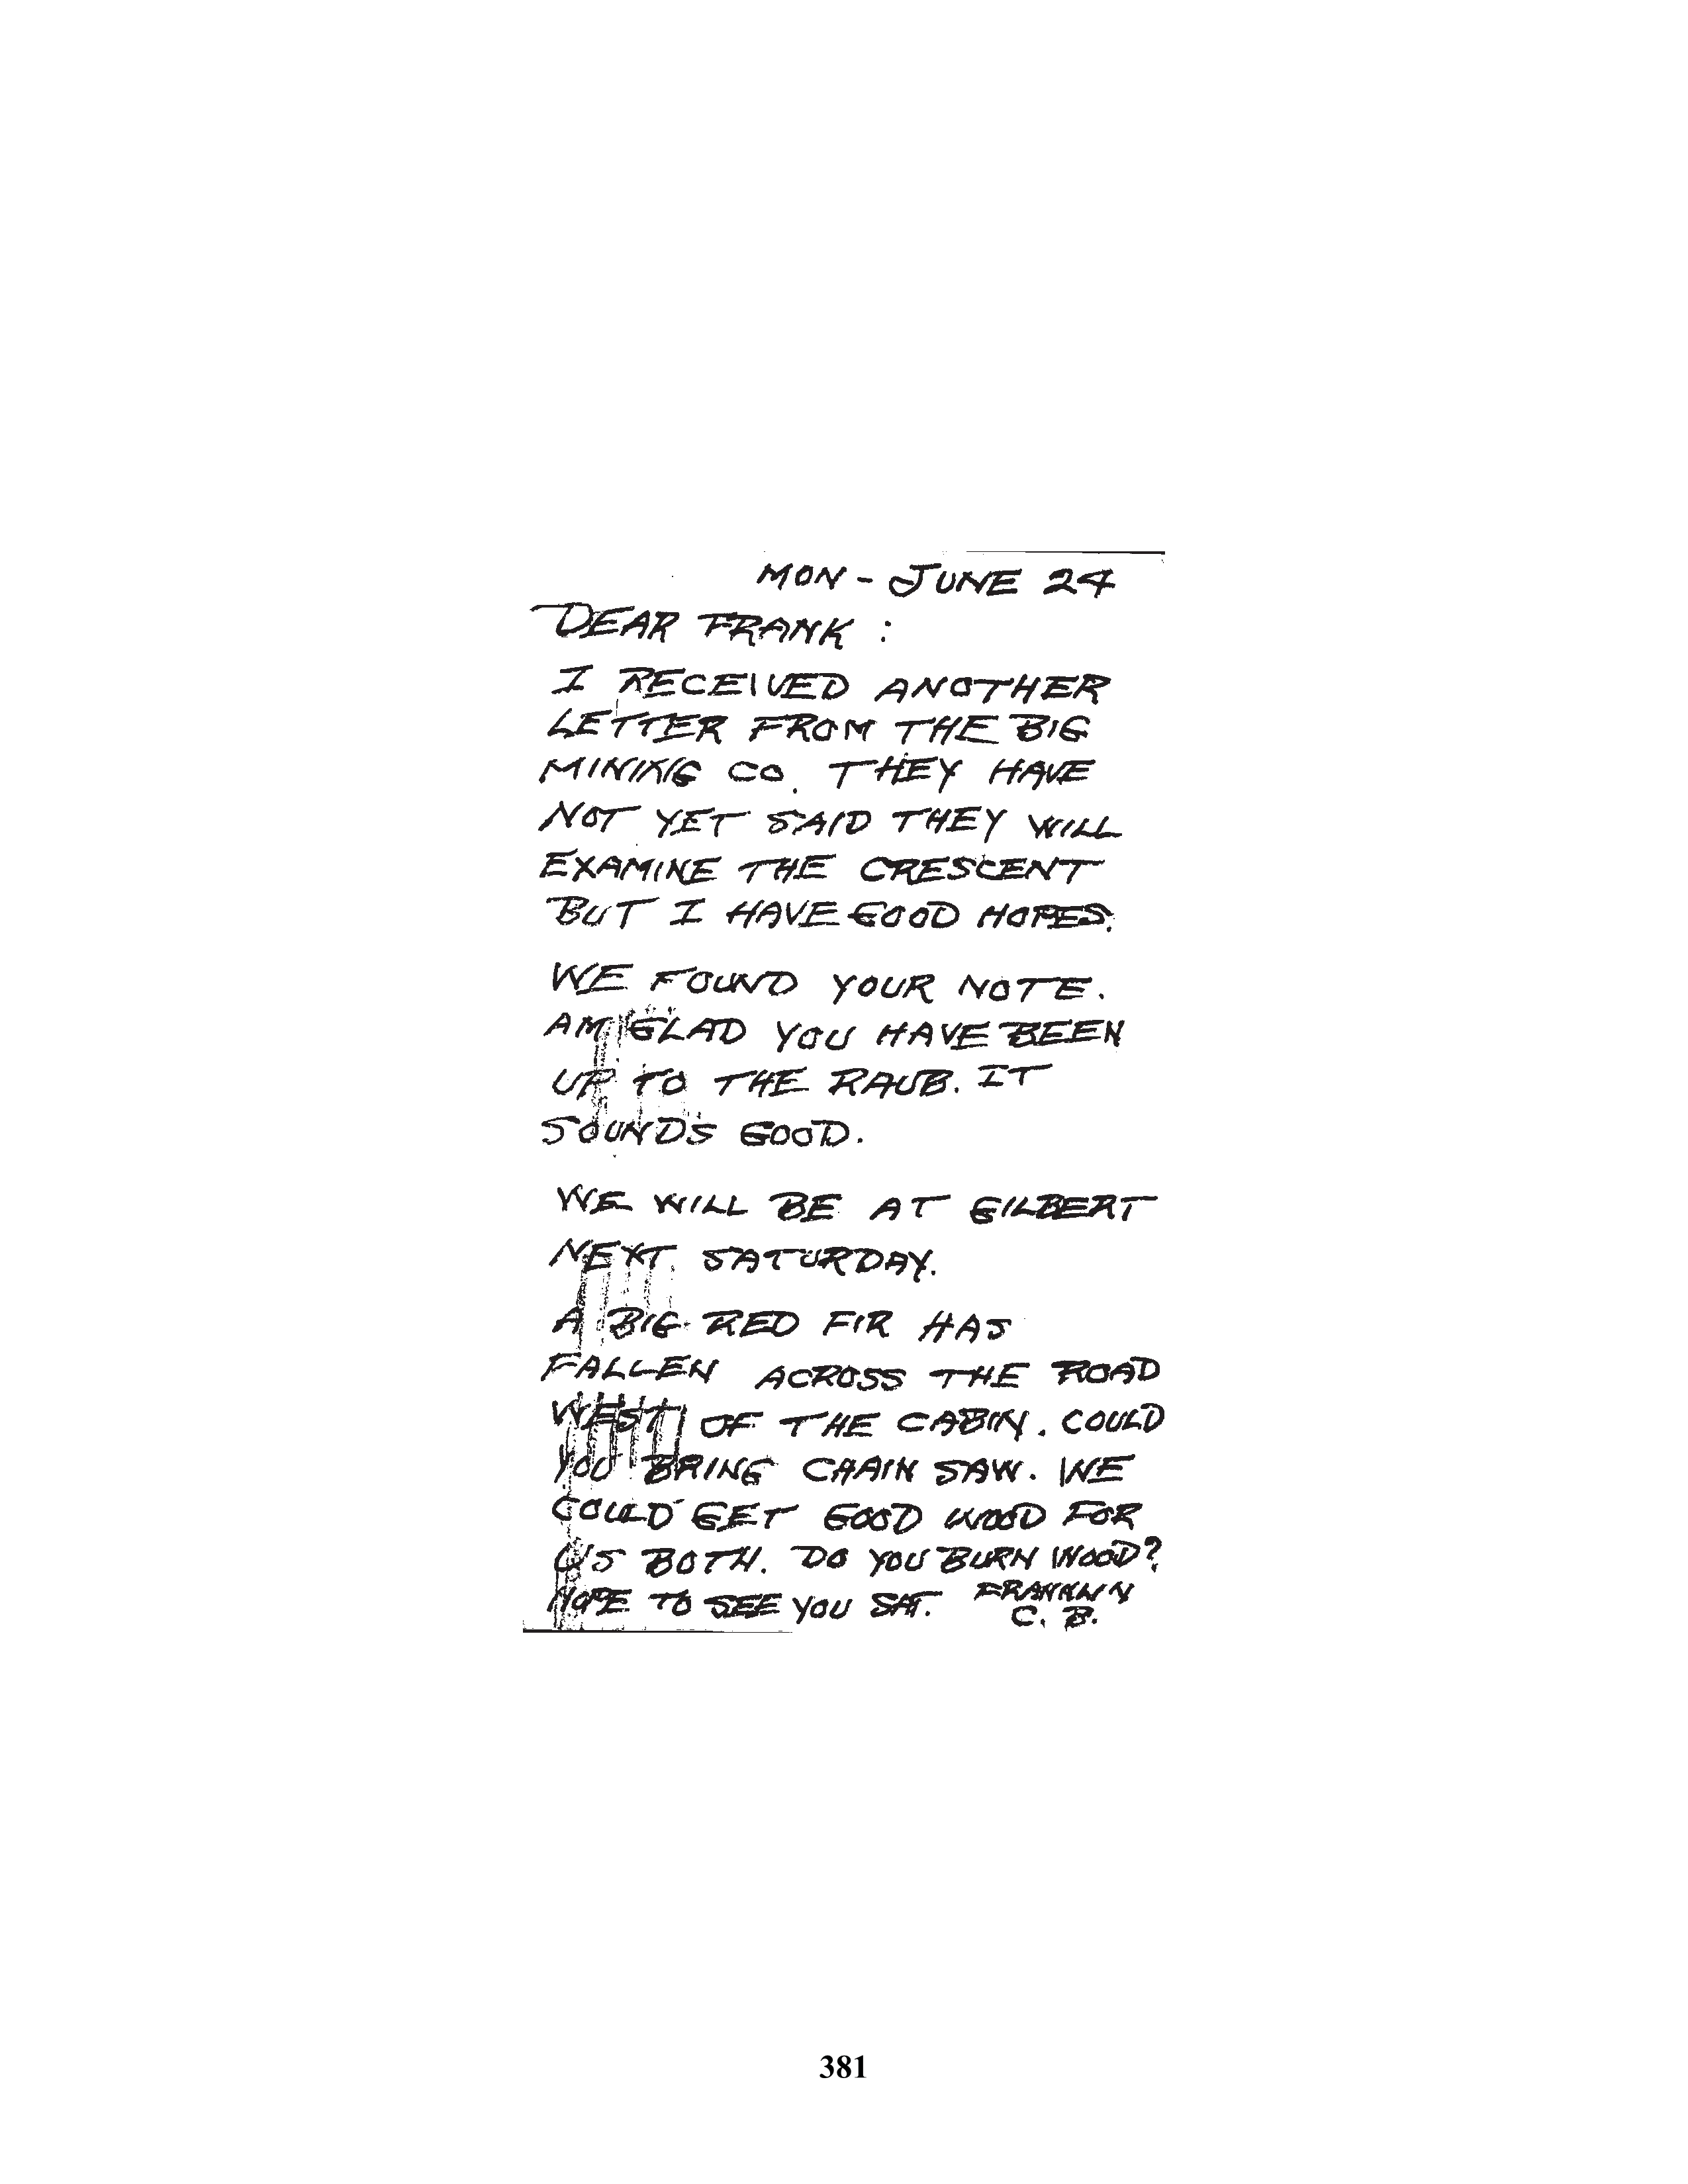 MON - JUNE 24
DEAR FRANK :
I RECEIVED ANOTHER
LETTER FROM THE BIG
MINING CO. THEY HAVE
NOT YET SAID THEY WILL
EXAMINE THE CRESCENT
BUT I HAVE GOOD HOPES.
WE FOUND YOUR NOTE.
AM GLAD YOU HAVE BEEN
UP TO THE RAUB. IT
SOUNDS GOOD.
WE WILL BE AT GILBERT
NEXT SATURDAY.
A BIG RED FIR HAS
FALLEN ACROSS THE ROAD
WEST OF THE CABIN. COULD
YOU BRING CHAIN SAW. WE
COULD GET GOOD WOOD FOR
US BOTH. DO YOU BURN WOOD?
HOPE TO SEE YOU SAT. FRANKLIN
C. B.
381